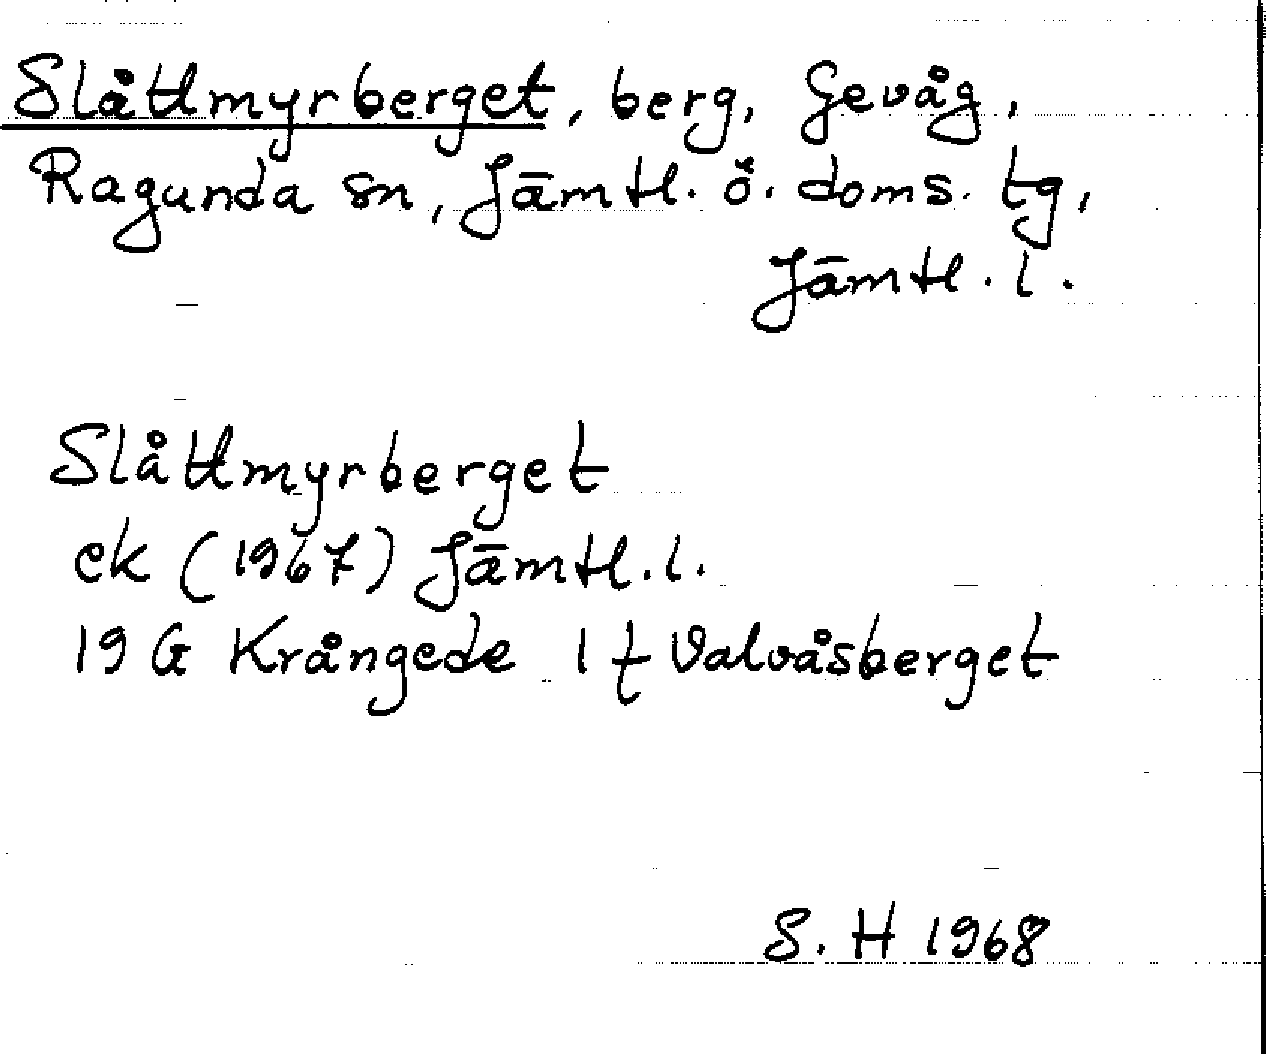 Slåttmyrberget, berg, Gevåg,
Ragunda sn, Jämtl. ö. doms. tg,
Jämtl. l.
Slåttmyrberget
ek (1967) Jämtl. l.
19 G Krångede 1 f Valvåsberget
S. H 1968